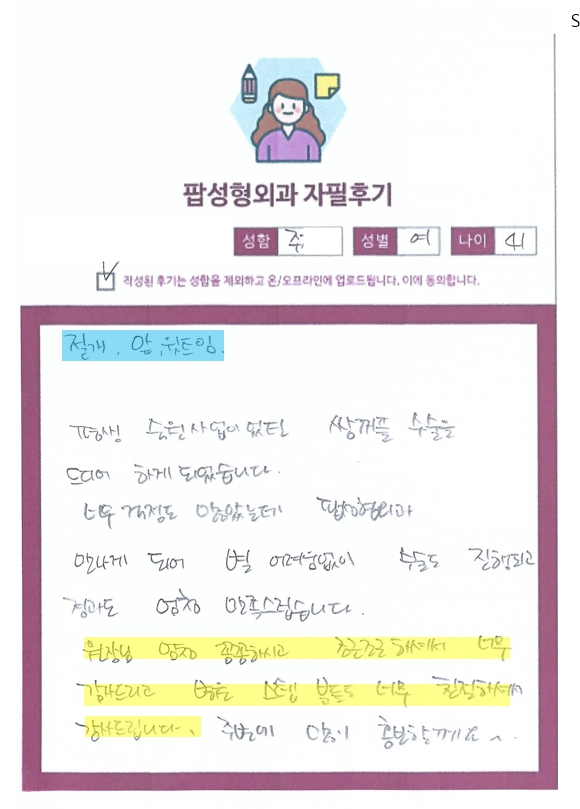 S
팝성형외과 자필후기
성함 주 성별 여 나이 41
작성된 후기는 성함을 제외하고 온/오프라인에 업로드됩니다. 이에 동의합니다.
절개, 앞, 윗트임.
평생 숙원사업이었던 쌍꺼플 수술을
드디어 하게 되었습니다.
너무 걱정도 많았는데 팝성형외과
만나게 되어 별 어려움없이 수술도 진행되고
경과도 엄청 만족스럽습니다.
원장님 엄청 꼼꼼하시고 하셔서 너무
감사드리고 스텝 분들도 너무 친절하셔서
감사드립니다. 주변에 많이 홍보할께요~.